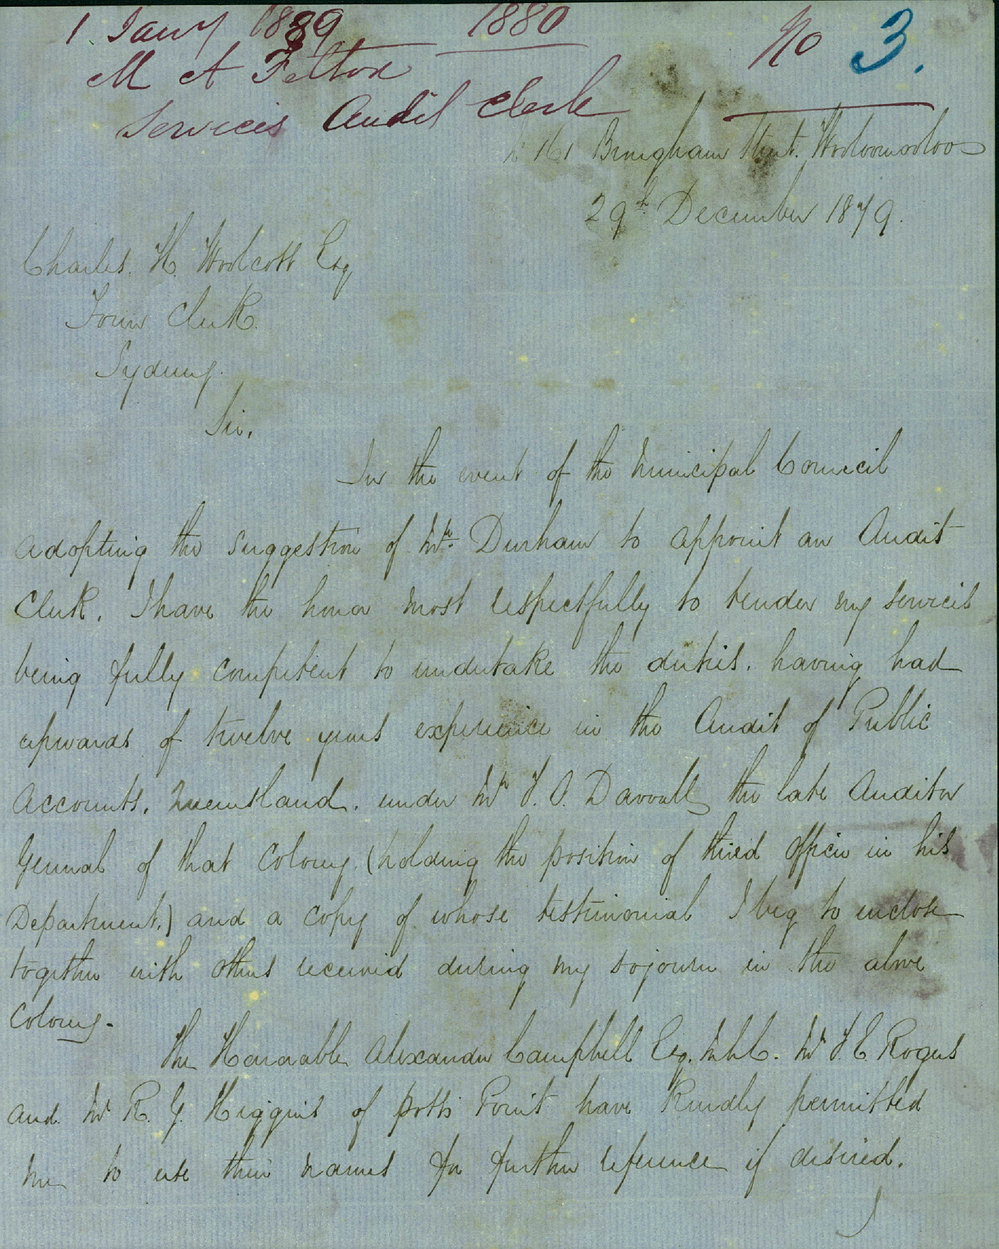 1 Jany 1880 1880 No 3.
M A Felton
Services Audit Clerk
161 Brougham Street. Woolloomooloo
29th December 1879.
Charles. H. Woolcott Esq
Town Clerk.
Sydney.
Sir,
In the event of the Municipal Council
adopting the suggestion of Mr. Durham to appoint an Audit
Clerk, I have the honor most respectfully to tender my services
being fully competent to undertake the duties. having had
upwards of twelve years experience in the Audit of Public
Accounts, Queensland, under Mr F. O. Darvall, the late Auditor
General of that Colony. (holding the position of third officer in his
Department,) and a copy of whose testimonial I beg to enclose
together with others received during my sojourn in the above
Colony.
The Honorable Alexander Campbell Esq. M.L.C. Mr F. E. Rogers
and Mr R. G. Higgins of Potts Point have kindly permitted
me to use their names for further reference if desired.